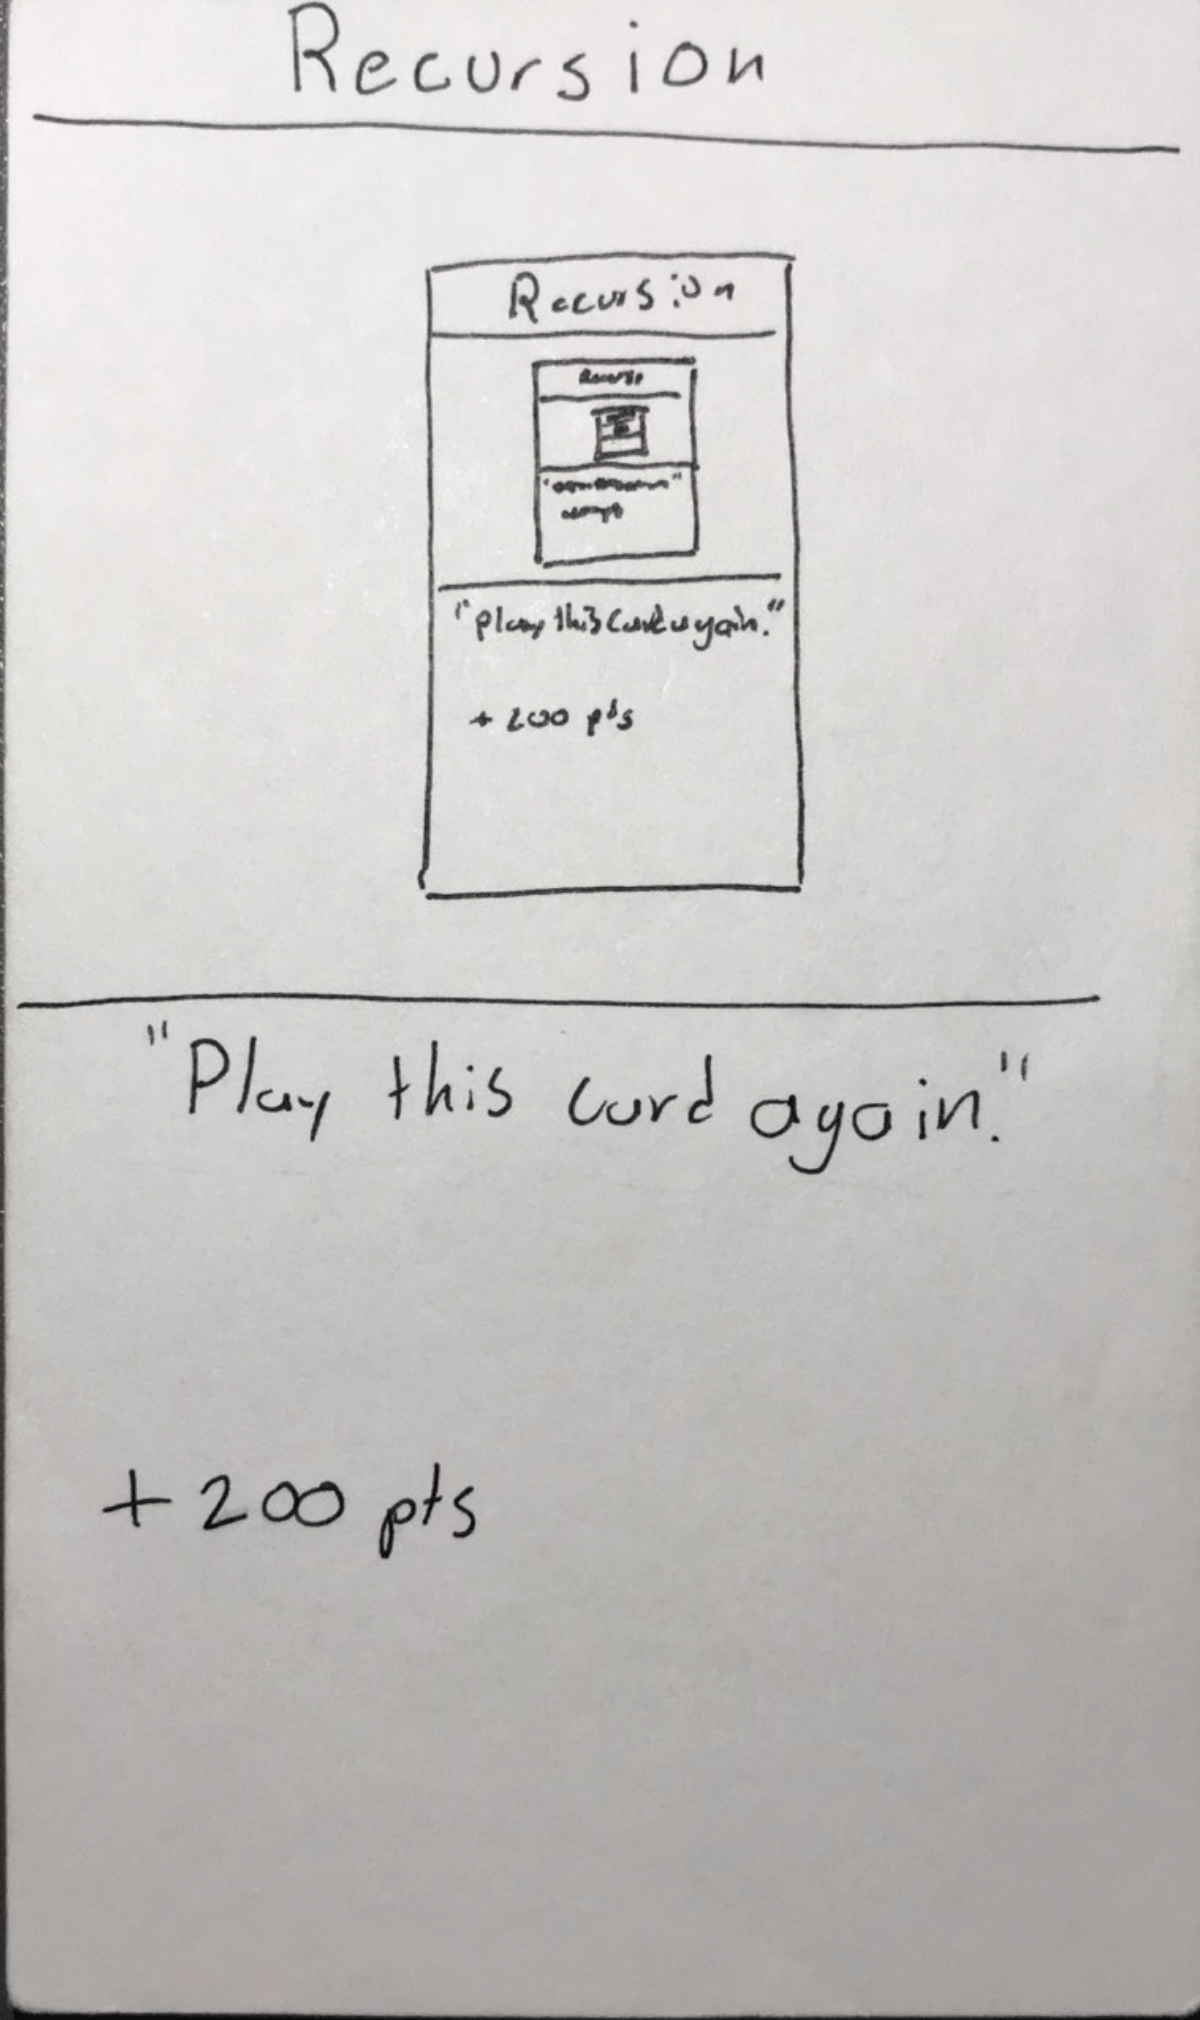 Recursion
Recursion
"Play this card again."
+ 200 pts
"Play this card again."
+ 200 pts